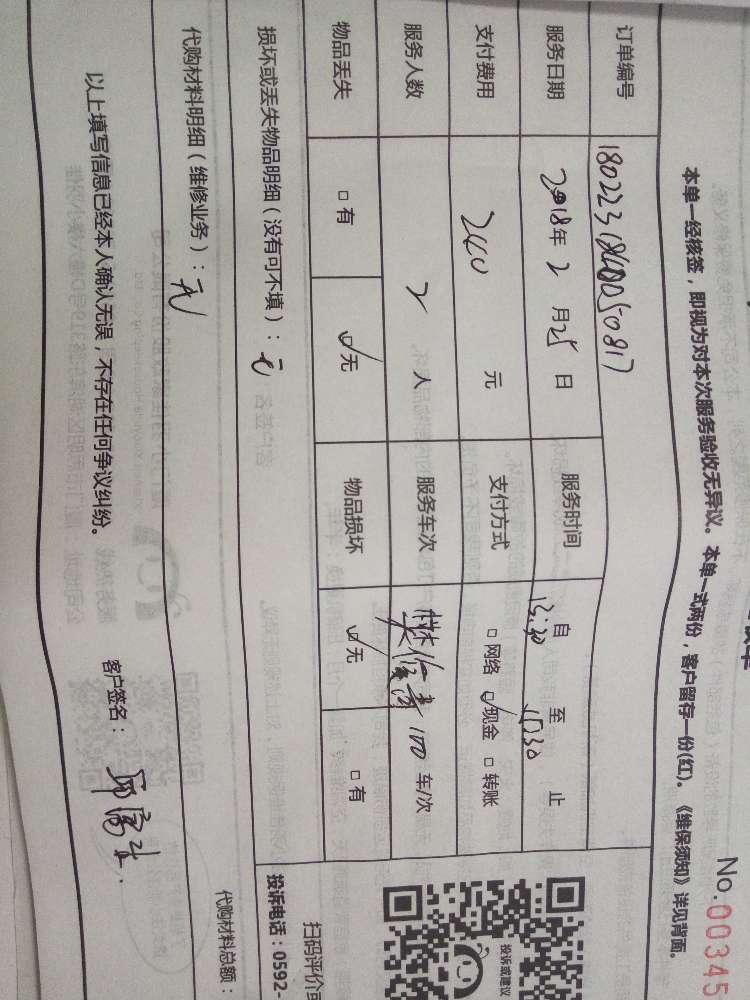 No.00345
本单一经核签，即视为对本次服务验收无异议。本单一式两份，客户留存一份(红)。《维保须知》详见背面。
订单编号
服务日期 2018年 2 月 25 日 服务时间 自 13:30 至 15:30 止
支付费用 240 元 支付方式 □ 网络 ☑ 现金 □ 转账
服务人数 2 人 服务车次 100 车/次
物品丢失 □ 有 ☑ 无 物品损坏 ☑ 无 □ 有
损坏或丢失物品明细（没有可不填）：无
代购材料明细（维修业务）：无
代购材料总额：
以上填写信息已经本人确认无误，不存在任何争议纠纷。 客户签名：
投诉或建议
扫码评价
投诉电话：0592-